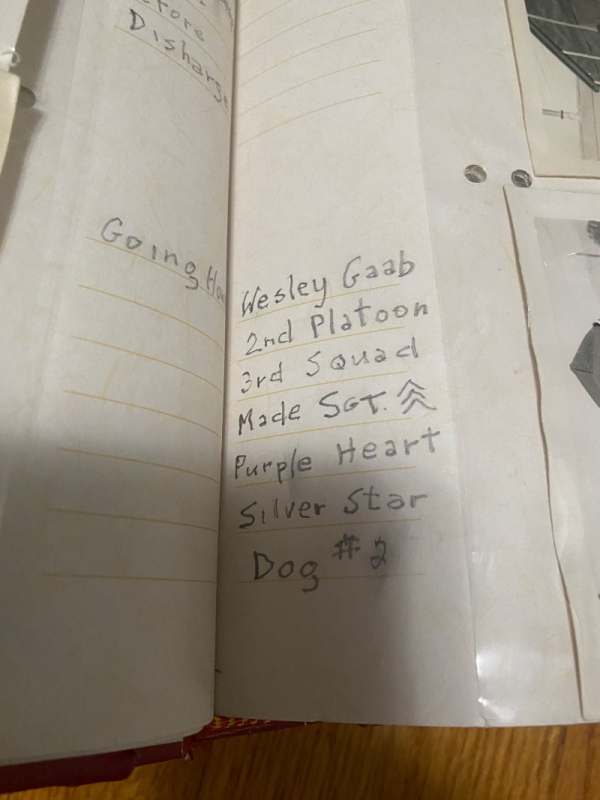 Disharge
Going
Wesley Gaab
2nd Platoon
3rd Squad
Made SGT.
Purple Heart
Silver Star
Dog #2